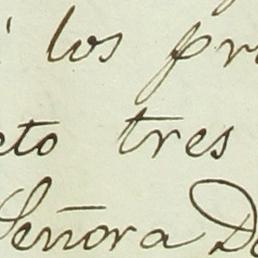 los pr
eto tres
Señora D